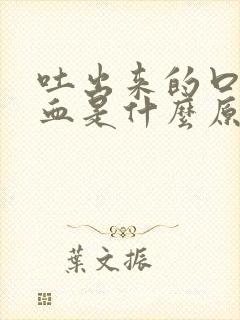 吐出来的口
血是什麼原
葉文振